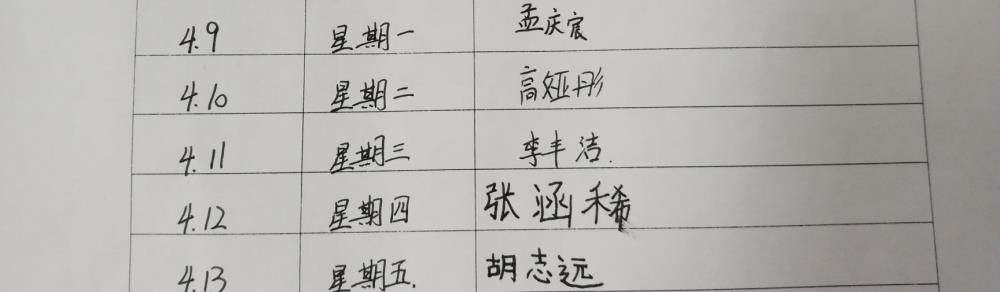 4.9 星期一 孟庆宸
4.10 星期二 高娅彤
4.11 星期三 李丰洁.
4.12 星期四 张涵稀
4.13 星期五. 胡志远